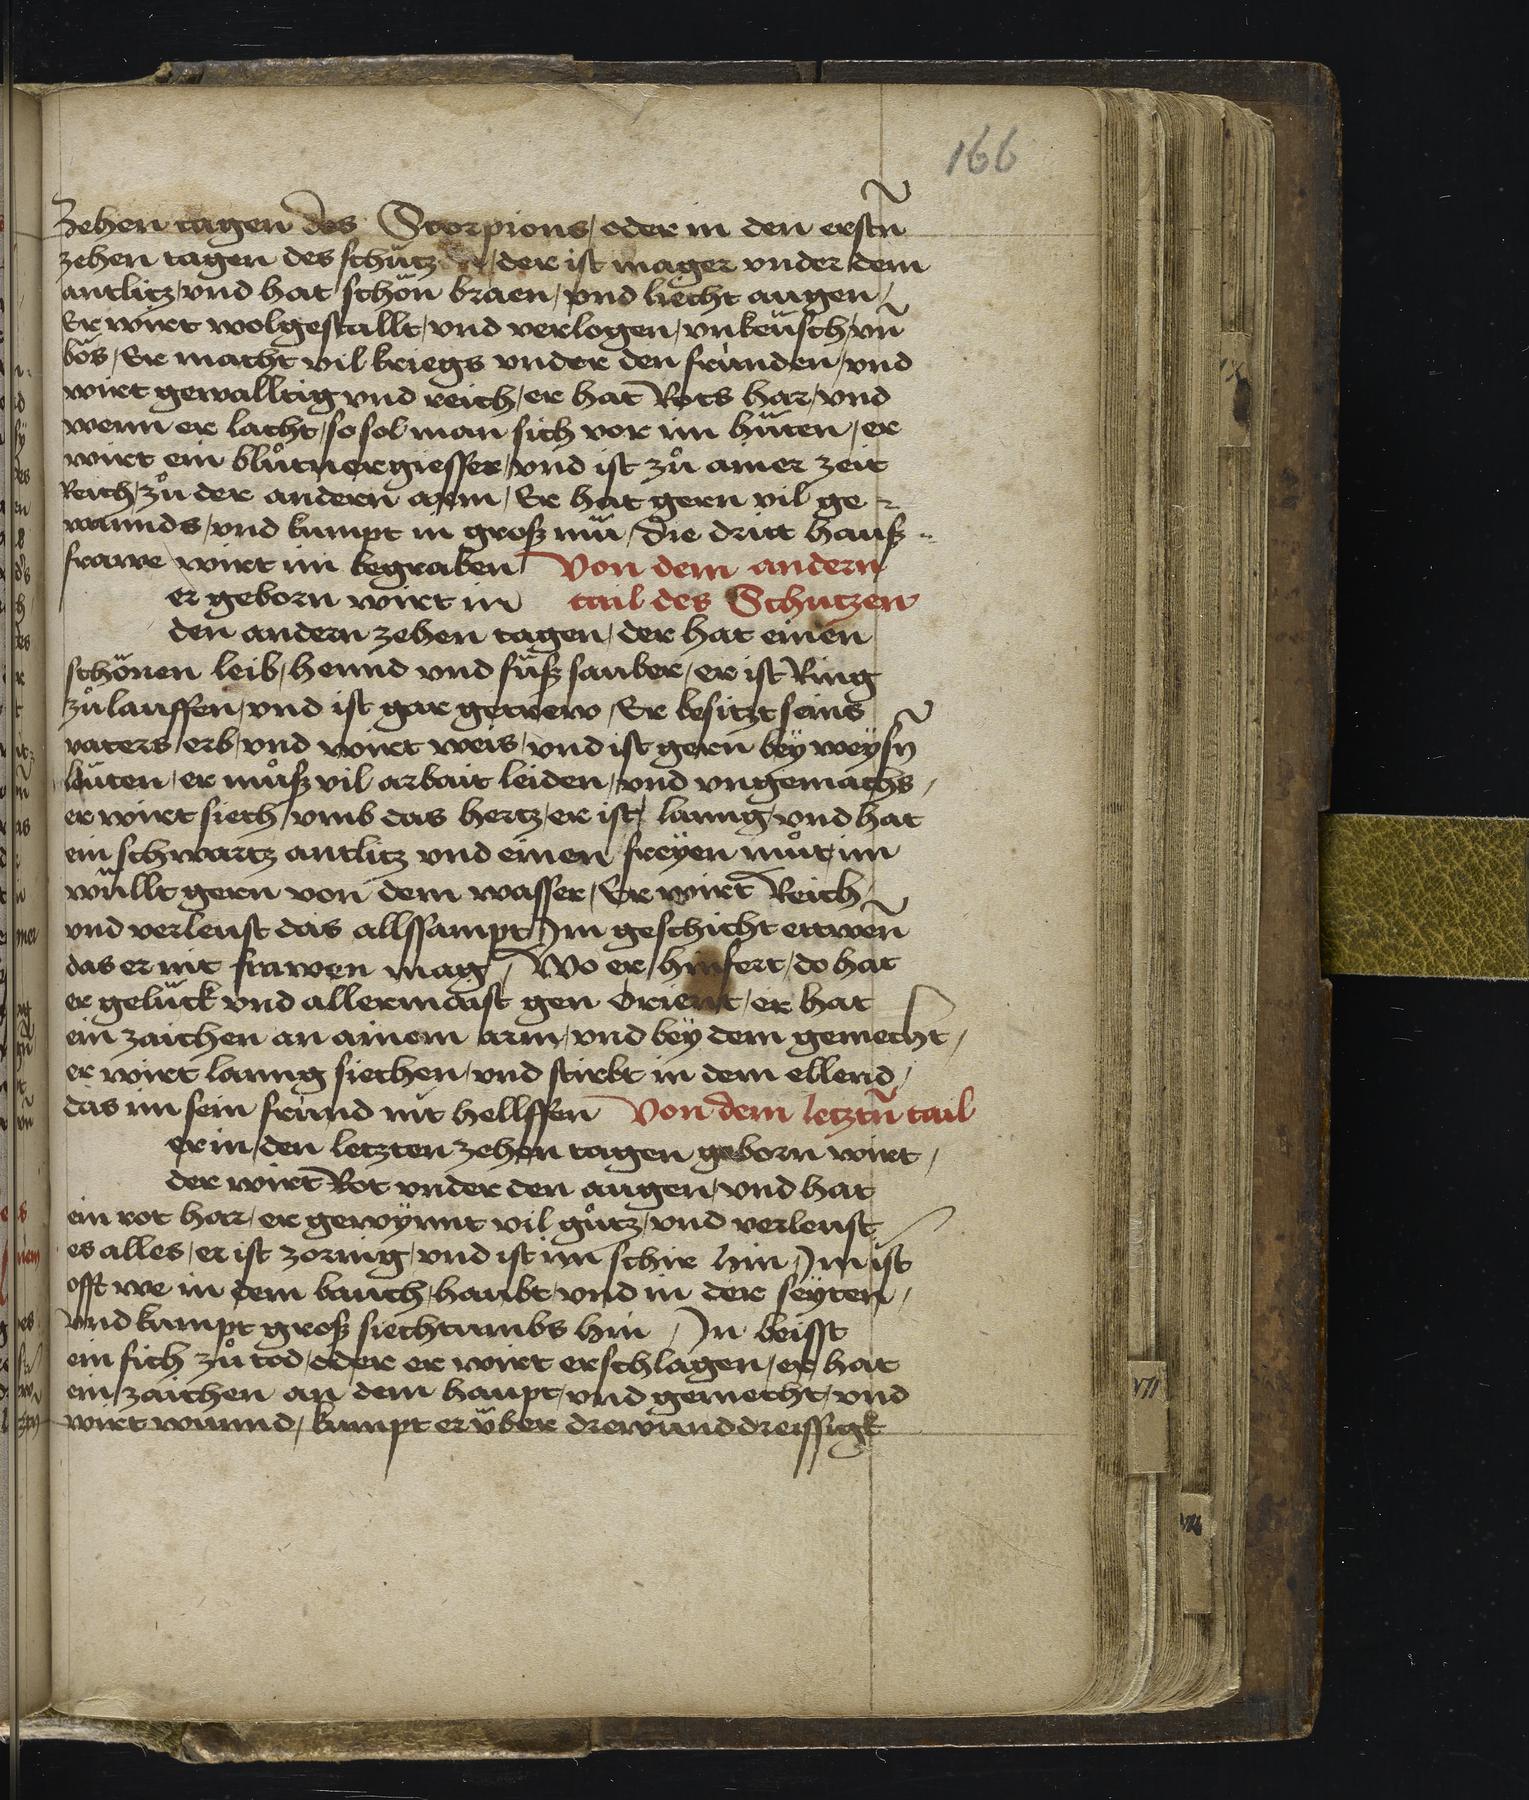 166
zehen tagen des Scorpions / oder in den erstn̄
zehen tagen des schütz / der ist mager vnder dem
antlitz / vnd hat schön braen / vnd liecht augen /
Er wirt wolgestallt / vnd verlogen / vnkeüsch / vn̄
bös / Er macht vil kriegs vnder den fründen / vnd
wirt gewalltig vnd reich / er hat Rots har / vnd
wenn er lacht / so sol man sich vor im hüten / er
wirt ein blůtuergiesser / vnd ist zů ainer zeit
Reich / zů der andern arm / Er hat gern vil ge =
wannds / vnd kumpt in groß mü / die dritt hauß =
frawe wirt im begraben Von dem andern
er geborn wirt in tail des Schutzen
den andern zehen tagen / der hat einen
schönen leib / hennd vnd füß sauber / er ist Ring
zů lauffen / vnd ist gar getrew / Er besitzt seins
vaters / erb / vnd wirt weis / vnd ist gern bey weysn̄
leüten / er můß vil arbait leiden / vnd vngemachs /
er wirt siech / vmb das hertz / er ist lanng / vnd hat
ein schwartz antlitz vnd einen freyen můt / im
wüllt gern von dem wasser / Er wirt Reich /
vnd verleust das allssampt Im geschicht ettwen̄
das er nit frawen mag / Wo er hinfert / do hat
er gelück vnd allermaist gen Orient / er hat
ein zaichen an ainem arm / vnd bey dem gemecht /
er wirt lanng siechen / vnd stirbt in dem ellend /
das im sein fründ nit hellffen Von dem letztn̄ tail
er in den letzten zehen tagen geborn wirt /
der wirt Rot vnder den augen / vnd hat
ein rot har / er gewynnt vil gůtz / vnd verleust
es alles / er ist zornig / vnd ist im schir hin / Im ist
offt we in dem bauch / haubt / vnd in der seyten /
vnd kumpt groß siechtumbs hin / In beisst
ein fich zů tod / oder er wirt erschlagen / er hat
ein zaichen an dem haupt / vnd gemecht / vnd
wirt wunnd / kumpt er über drewunddreissigk
VII